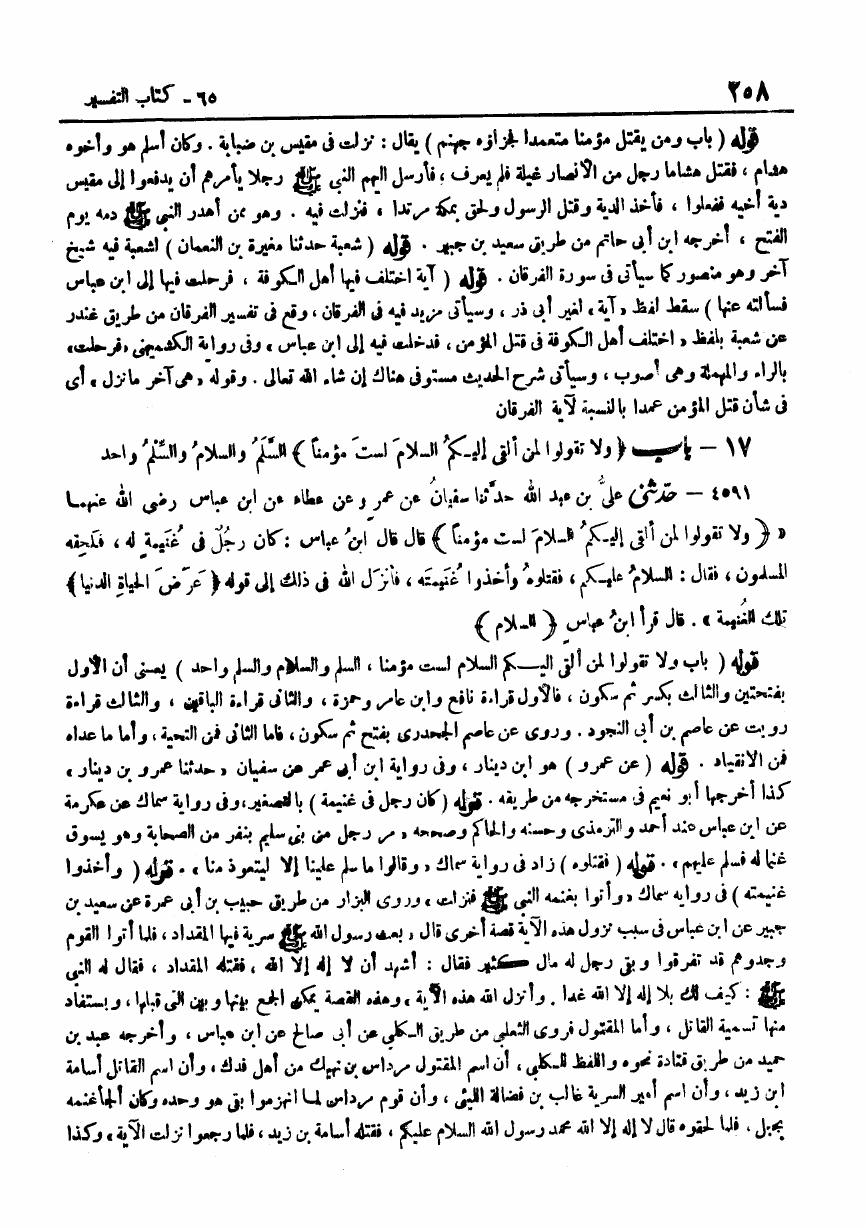 ٢٥٨
٦٥ - كتاب التفسير
قوله ( باب ومن يقتل مؤمنا متعمدا فجزاؤه جهنم ) يقال : نزلت فى مقيس بن ضبابة . وكان أسلم هو وأخوه
هشام ، فقتل هشاما رجل من الأنصار غيلة فلم يعرف ، فأرسل اليهم النبي ﷺ رجلا يأمرهم أن يدفعوا إلى مقيس
دية أخيه ففعلوا ، فأخذ الدية وقتل الرسول ولحق بمكة مرتدا ، فنزلت فيه . وهو ممن أهدر النبي ﷺ دمه يوم
الفتح ، أخرجه ابن أبى حاتم من طريق سعيد بن جبير . قوله ( شعبة حدثنا مغيرة بن النعمان ) لشعبة فيه شيخ
آخر وهو منصور كما سيأتى فى سورة الفرقان . قوله ( آية اختلف فيها أهل الكوفة ، فرحلت فيها إلى ابن عباس
فسألته عنها ) سقط لفظ « آية » لغير أبى ذر ، وسيأتى مزيد فيه فى الفرقان ، وقع فى تفسير الفرقان من طريق غندر
عن شعبة بلفظ « اختلف أهل الكوفة فى قتل المؤمن ، فدخلت فيه إلى ابن عباس » وفى رواية الكشميهنى «فرحلت»
بالراء والمهملة وهى أصوب ، وسيأتى شرح الحديث مستوفى هناك إن شاء الله تعالى . وقوله « هى آخر ما نزل » أى
فى شأن قتل المؤمن عمدا بالنسبة لآية الفرقان
١٧ - باب ﴿ ولا تقولوا لمن ألقى إليكمُ السلامَ لستَ مؤمناً ﴾ السَّلَمُ والسلامُ والسِّلْمُ واحد
٤٥٩١ - حدّثنى علىُّ بن عبد الله حدَّثنا سفيانُ عن عمرٍو عن عطاء عن ابن عباس رضى الله عنهما
« ﴿ ولا تقولوا لمن ألقى إليكمُ السلامَ لست مؤمناً ﴾ قال قال ابنُ عباس : كان رجُلٌ فى غُنَيمةٍ له ، فلَحِقه
المسلمون ، فقال : السلامُ عليكم ، فقتلوهُ وأخذوا غُنَيمتَه ، فأنزَل الله فى ذلك إلى قوله ﴿ عَرَضَ الحياةِ الدنيا﴾
تلك الغُنَيمة » . قال قرأ ابنُ عباسٍ ﴿ السلام ﴾
قوله ( باب ولا تقولوا لمن ألقى اليكم السلام لست مؤمنا ، السلم والسلام والسلم واحد ) يعنى أن الأول
بفتحتين والثالث بكسر ثم سكون ، فالأول قراءة نافع وابن عامر وحمزة ، والثانى قراءة الباقين ، والثالث قراءة
رويت عن عاصم بن أبى النجود . وروى عن عاصم الجحدرى بفتح ثم سكون ، فاما الثانى فمن التحية ، وأما ما عداه
فمن الانقياد . قوله ( عن عمرو ) هو ابن دينار ، وفى رواية ابن أبى عمر عن سفيان « حدثنا عمرو بن دينار »
كذا أخرجها أبو نعيم فى مستخرجه من طريقه . قوله ( كان رجل فى غنيمة ) بالتصغير ، وفى رواية سماك عن عكرمة
عن ابن عباس عند أحمد والترمذى وحسنه والحاكم وصححه « مر رجل من بنى سليم بنفر من الصحابة وهو يسوق
غنما له فسلم عليهم » . قوله ( فقتلوه ) زاد فى رواية سماك « وقالوا ما سلم علينا إلا ليتعوذ منا » . قوله ( وأخذوا
غنيمته ) فى رواية سماك « وأتوا بغنمه النبى ﷺ فنزلت » وروى البزار من طريق حبيب بن أبى عمرة عن سعيد بن
جبير عن ابن عباس فى سبب نزول هذه الآية قصة أخرى قال « بعث رسول الله ﷺ سرية فيها المقداد ، فلما أتوا القوم
وجدوهم قد تفرقوا وبقى رجل له مال كثير فقال : أشهد أن لا إله إلا الله ، فقتله المقداد ، فقال له النبى
ﷺ : كيف لك بلا إله إلا الله غدا . وأنزل الله هذه الآية » وهذه القصة يمكن الجمع بينها وبين التى قبلها ، ويستفاد
منها تسمية القاتل ، وأما المقتول فروى الثعلبى من طريق الكلبى عن أبى صالح عن ابن عباس ، وأخرجه عبد بن
حميد من طريق قتادة نحوه واللفظ للكلبى ، أن اسم المقتول مرداس بن نهيك من أهل فدك ، وأن اسم القاتل أسامة
ابن زيد ، وأن اسم أمير السرية غالب بن فضالة الليثى ، وأن قوم مرداس لما انهزموا بقى هو وحده وكان ألجأ غنمه
بجبل . فلما لحقوه قال لا إله إلا الله محمد رسول الله السلام عليكم ، فقتله أسامة بن زيد ، فلما رجعوا نزلت الآية » وكذا